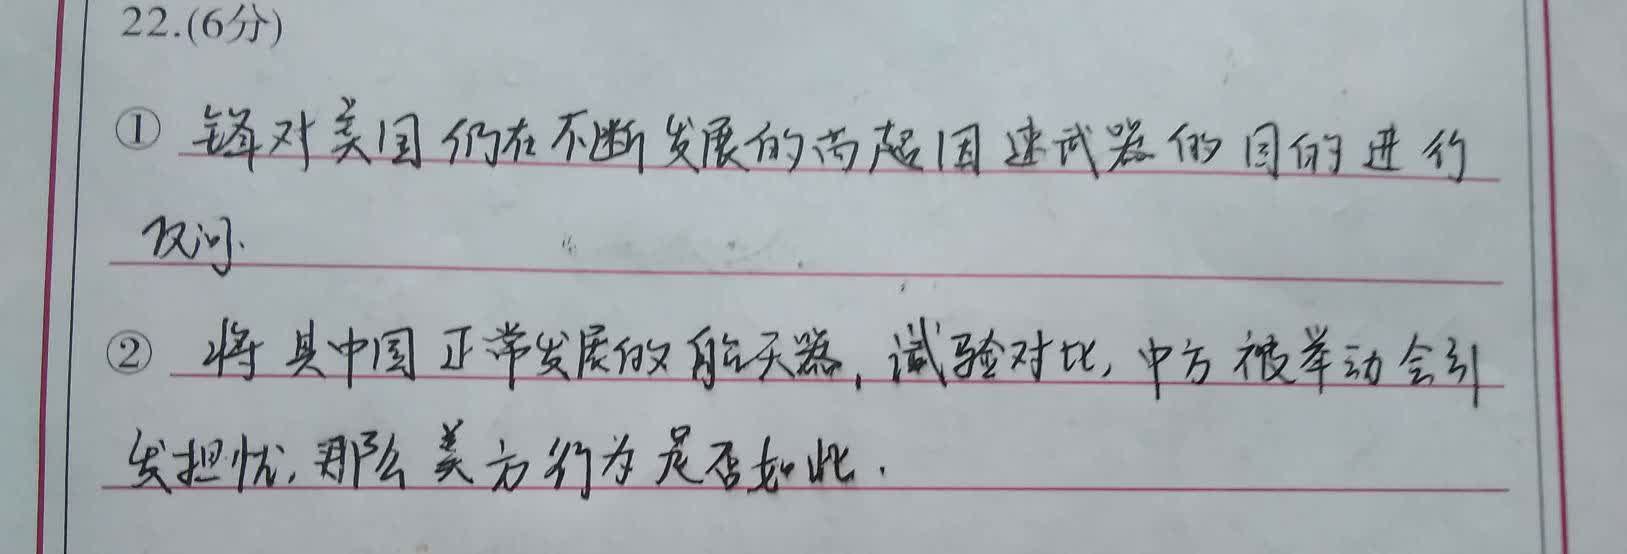 22.(6分)
① 锋对美国们在不断发展的高超因速武器的目的进行
反问.
② 将其中国正常发展的航天器,试验对比,中方被举动会引
发担忧,那么美方行为是否如此.